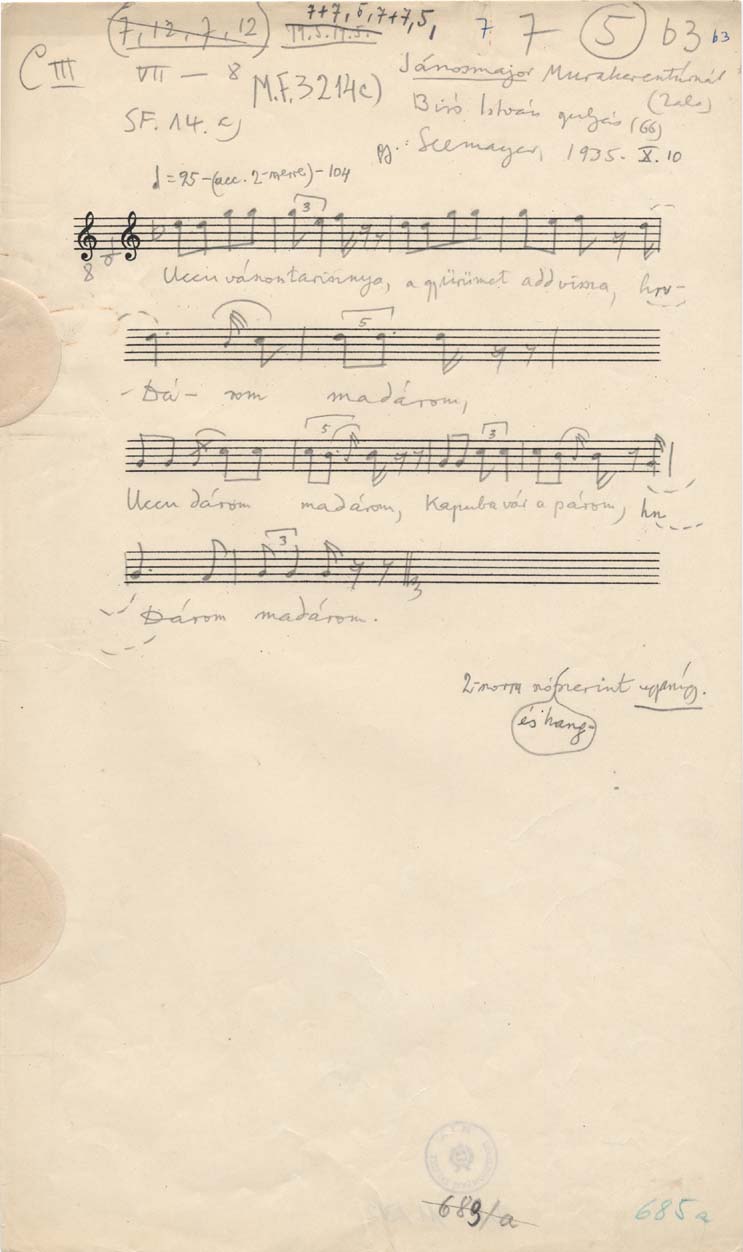 (7, 12, 7, 12) 7+7, 5, 7+7, 5, 7 7 5 b3 b3
19. 5. 19. 5.
C III VII — 8 M.F. 3214c) Jánosmajor Murakeresztúrnál
(Zala)
SF. 14. c) Biró István gulyás (66)
gy.: Seemayer, 1935. X. 10
♩ = 95 – (acc. 2-ik) – 104
3
8 Uccu várontarinnya, a gyűrűmet add vissza, hn-
5
- Dá- rom madárom,
5 3
Uccu dárom madárom, Kapuba vár a párom, hn
3
Dárom madárom.
szerint ugyanúgy.
és hang-
689/a 685a